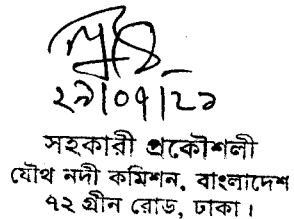 ২৯/০৭/২১
সহকারী প্রকৌশলী
যৌথ নদী কমিশন, বাংলাদেশ
৭২ গ্রীন রোড, ঢাকা।